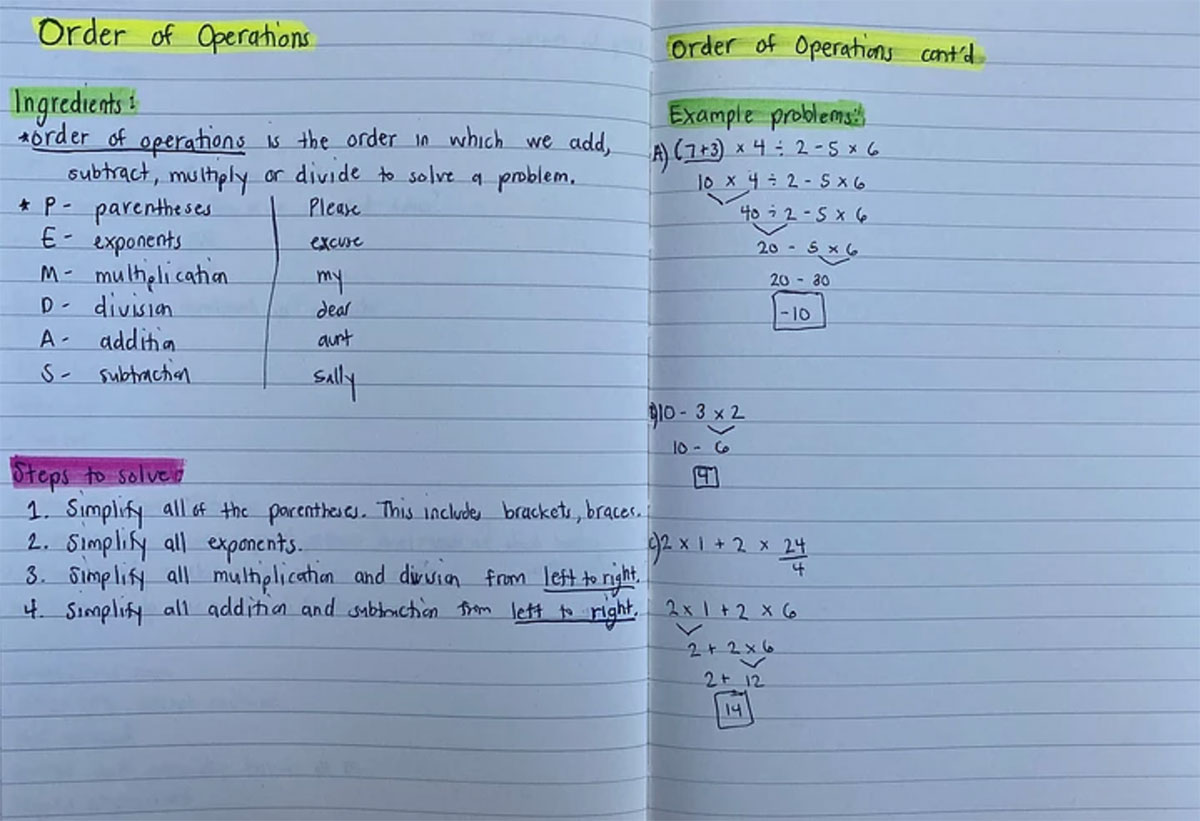 Order of Operations
Ingredients:
*order of operations is the order in which we add,
subtract, multiply or divide to solve a problem.
* P - parentheses | Please
E - exponents | excuse
M - multiplication | my
D - division | dear
A - addition | aunt
S - subtraction | sally
Steps to solve:
1. Simplify all of the parentheses. This includes brackets, braces.
2. Simplify all exponents.
3. Simplify all multiplication and division from left to right.
4. Simplify all addition and subtraction from left to right.
Order of Operations cont'd
Example problems:
A) (7+3) × 4 ÷ 2 - 5 × 6
10 × 4 ÷ 2 - 5 × 6
40 ÷ 2 - 5 × 6
20 - 5 × 6
20 - 30
-10
B) 10 - 3 × 2
10 - 6
4
C) 2 × 1 + 2 × 24/4
2 × 1 + 2 × 6
2 + 2 × 6
2 + 12
14